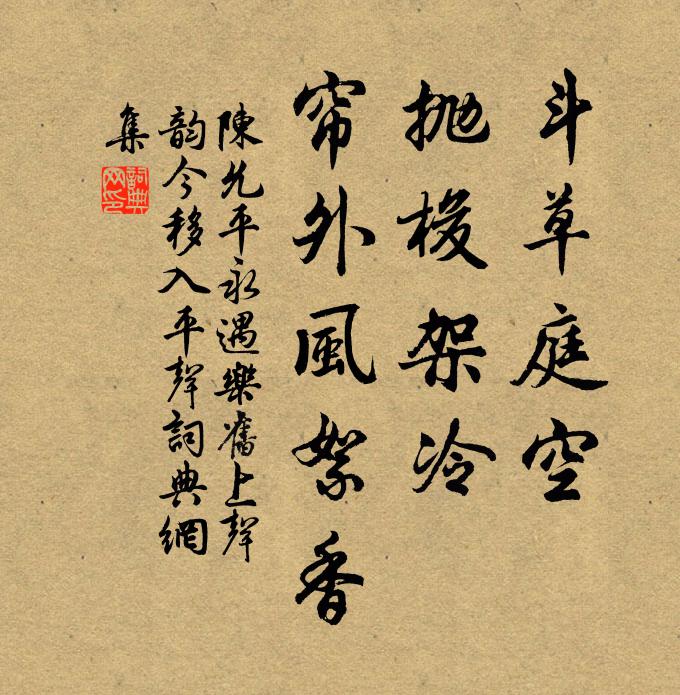 斗草庭空
抛梭架冷
帘外風絮香
陳允平永遇樂舊上聲
韵今移入平聲詞典網
集
詞典
网印